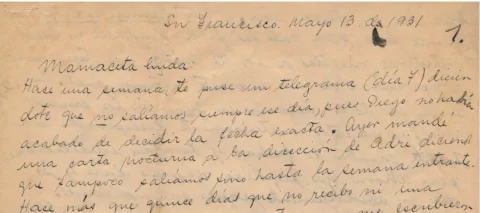 Sn Francisco. Mayo 13 de 1931
1.
Mamacita linda:
Hace una semana, te puse un telegrama (día 7) dicien
dote que no salíamos siempre ese día, pues Diego no había
acabado de decidir la fecha exacta. Ayer mandé
una carta nocturna a la dirección de Adri diciend
que tampoco salíamos sino hasta la semana entrante.
Hace más que quince días que no recibo ni una
que escribieron